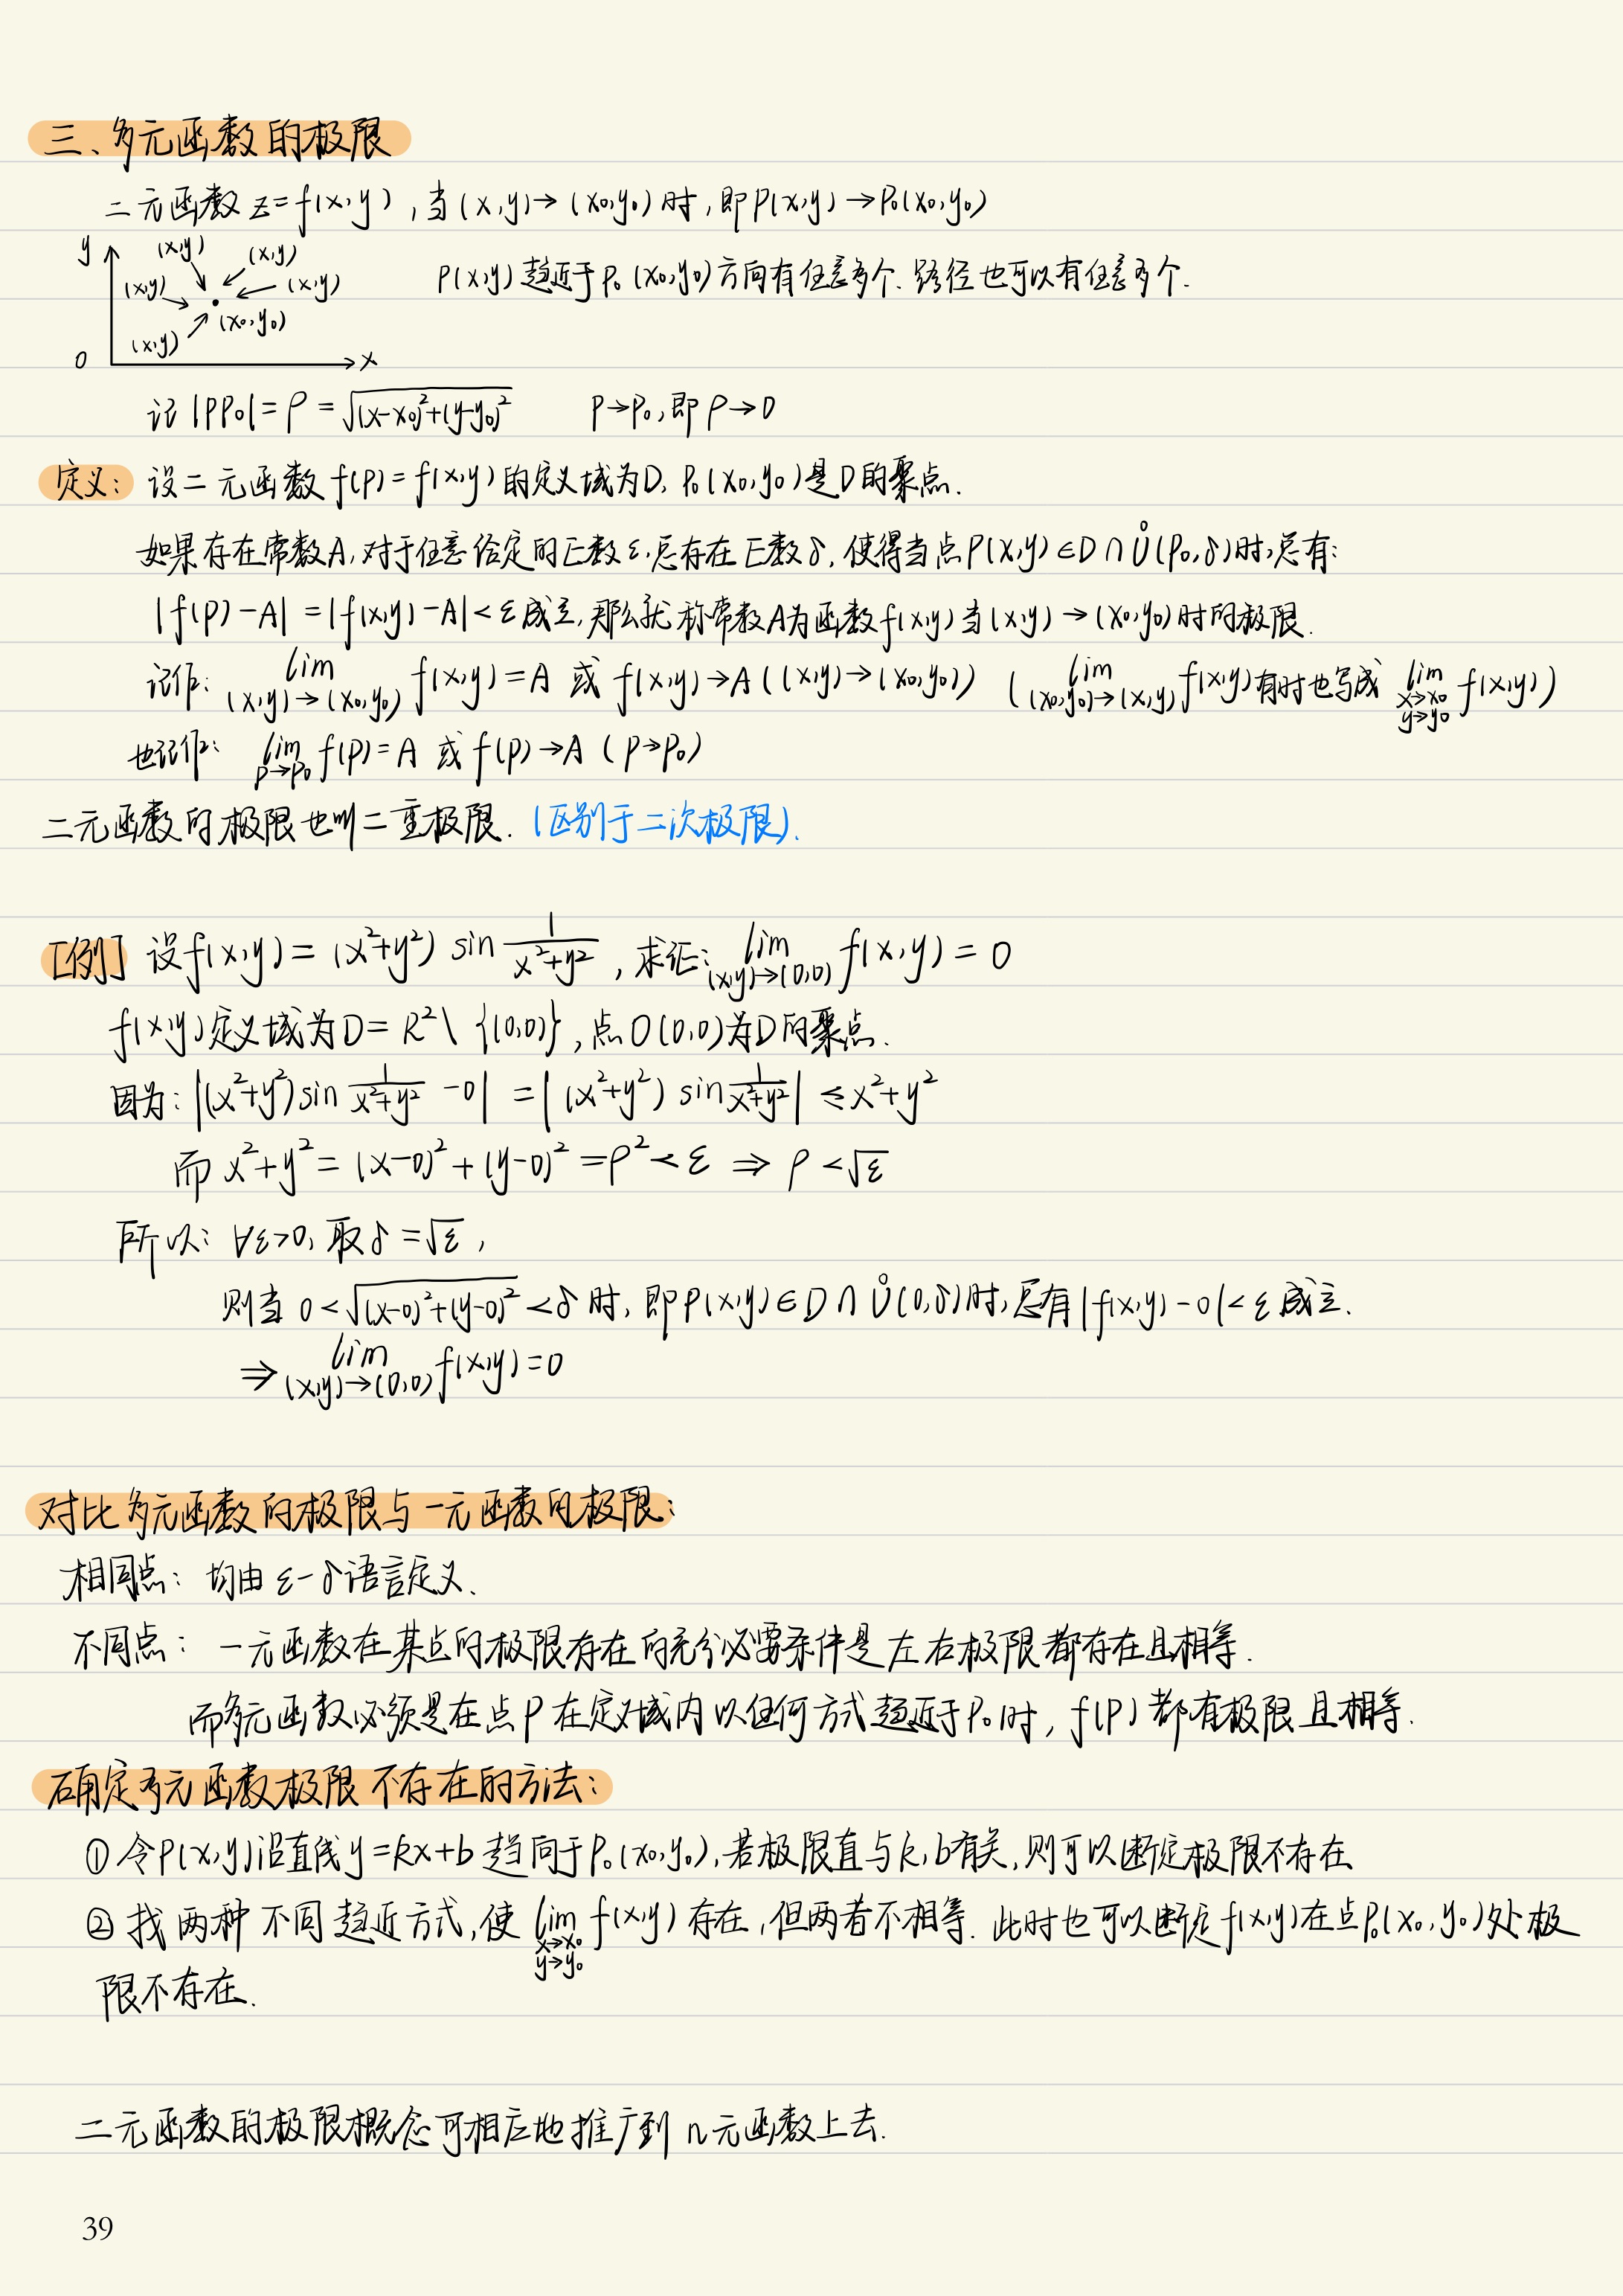 三、多元函数的极限
二元函数 z=f(x,y), 当(x,y)→(x₀,y₀)时, 即P(x,y)→P₀(x₀,y₀)
y
(x,y)
(x,y)
(x,y)
(x,y)
(x₀,y₀)
(x,y)
0
x
P(x,y)趋近于P₀(x₀,y₀)方向有任意多个. 路径也可以有任意多个.
记|PP₀|=ρ=√((x-x₀)²+(y-y₀)²) P→P₀,即ρ→0
定义: 设二元函数f(P)=f(x,y)的定义域为D, P₀(x₀,y₀)是D的聚点.
如果存在常数A,对于任意给定的正数ε,总存在正数δ,使得当点P(x,y)∈D∩Ů(P₀,δ)时,总有:
|f(P)-A|=|f(x,y)-A|<ε成立,那么就称常数A为函数f(x,y)当(x,y)→(x₀,y₀)时的极限.
记作: lim (x,y)→(x₀,y₀) f(x,y)=A 或 f(x,y)→A((x,y)→(x₀,y₀)) (lim (x₀,y₀)→(x,y) f(x,y)有时也写成 lim x→x₀ y→y₀ f(x,y))
也记作: lim P→P₀ f(P)=A 或 f(P)→A (P→P₀)
二元函数的极限也叫二重极限. (区别于二次极限).
[例] 设f(x,y)=(x²+y²) sin 1/(x²+y²), 求证: lim (x,y)→(0,0) f(x,y)=0
f(x,y)定义域为D=R²\{(0,0)}, 点O(0,0)为D的聚点.
因为: |(x²+y²)sin 1/(x²+y²) -0| =|(x²+y²) sin 1/(x²+y²)| ≤x²+y²
而 x²+y²=(x-0)²+(y-0)²=ρ²<ε ⇒ ρ<√ε
所以: ∀ε>0, 取δ=√ε,
则当 0<√((x-0)²+(y-0)²)<δ时, 即P(x,y)∈D∩Ů(0,δ)时,总有|f(x,y)-0|<ε成立.
⇒ lim (x,y)→(0,0) f(x,y)=0
对比多元函数的极限与一元函数的极限:
相同点: 均由ε-δ语言定义.
不同点: 一元函数在某点的极限存在的充分必要条件是左右极限都存在且相等.
而多元函数必须是在点P在定义域内以任何方式趋近于P₀时, f(P)都有极限且相等.
确定多元函数极限不存在的方法:
① 令P(x,y)沿直线y=kx+b趋向于P₀(x₀,y₀),若极限直与k,b有关,则可以断定极限不存在
② 找两种不同趋近方式,使 lim x→x₀ y→y₀ f(x,y)存在,但两者不相等. 此时也可以断定f(x,y)在点P₀(x₀,y₀)处极
限不存在.
二元函数的极限概念可相应地推广到n元函数上去.
39